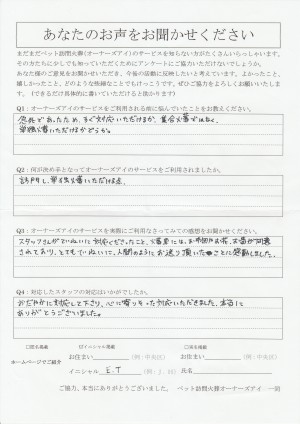 あなたのお声をお聞かせください
まだまだペット訪問火葬(オーナーズアイ)のサービスを知らない方がたくさんいらっしゃいます。
その方たちに少しでも知っていただくためにアンケートにご協力いただけないでしょうか。
あなた様のご意見をお聞かせいただき、今後の活動に反映したいと考えています。よかったこと、
嬉しかったこと、どのような些細なことでもけっこうです。ぜひご協力をよろしくお願いいたしま
す。(できるだけ具体的に書いていただけると助かります)
Q1:オーナーズアイのサービスをご利用される前に悩んでいたことをお教えください。
急死であったため、すぐ対応いただけるか、集合火葬ではなく、
単独火葬いただけるかどうか。
Q2:何が決め手となってオーナーズアイのサービスをご利用されましたか。
訪問し、単独火葬いただける点。
Q3:オーナーズアイのサービスを実際にご利用なさってみての感想をお聞かせください。
スタッフさんがていねいに対応くださったこと、火葬車には、お布団やお花、お香が用意
されており、とてもていねいで、人間のようにお送り頂いたことに感動しました。
Q4:対応したスタッフの対応はいかがでしたか。
おだやかに対応して下さり、心に寄りそった対応いただきました。本当に
ありがとうございました。
□匿名掲載 ☑イニシャル掲載 □実名掲載
ホームページでご紹介 お住まい (例:中央区) お住まい (例:中央区)
イニシャル E.T (例:J.H) 氏名
ご協力、本当にありがとうございました。 ペット訪問火葬オーナーズアイ 一同